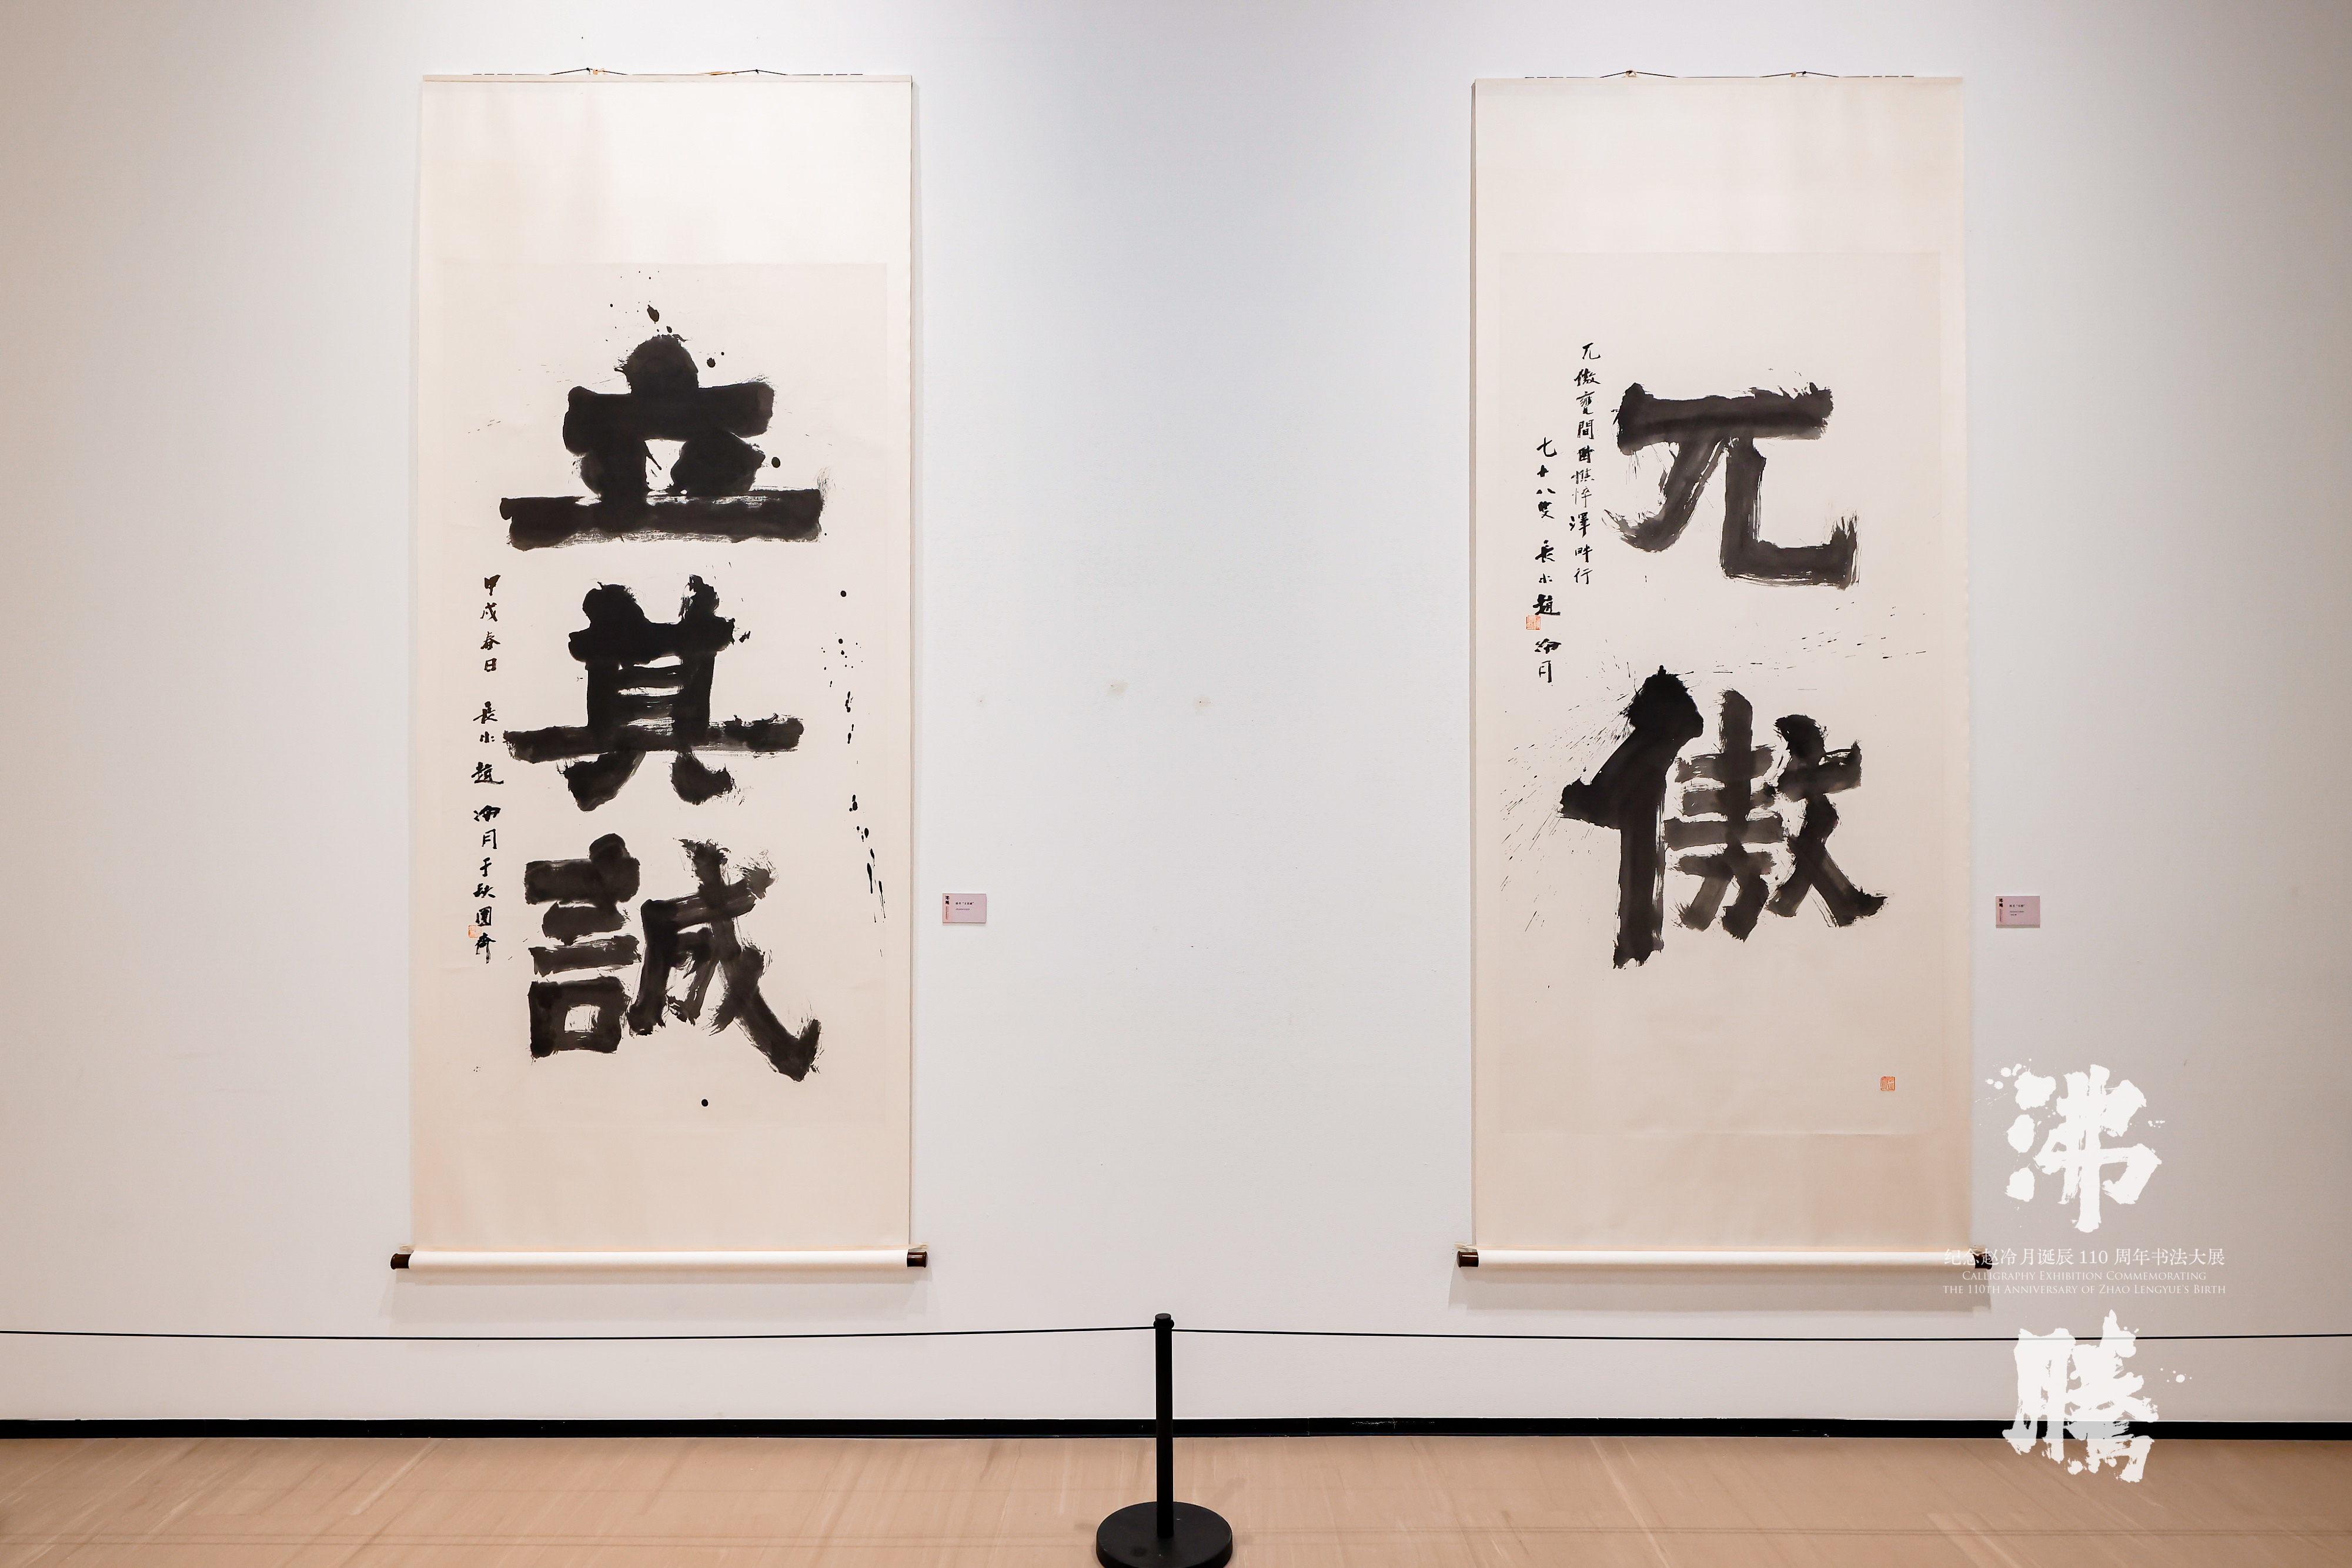 立真誠
甲戌春日 長水趙冷月于缺圓齋
兀傲
兀傲甕間憔悴澤畔行
七十八叟 長水趙冷月
沸
纪念赵冷月诞辰 110 周年书法大展
CALLIGRAPHY EXHIBITION COMMEMORATING
THE 110TH ANNIVERSARY OF ZHAO LENGYUE'S BIRTH
騰